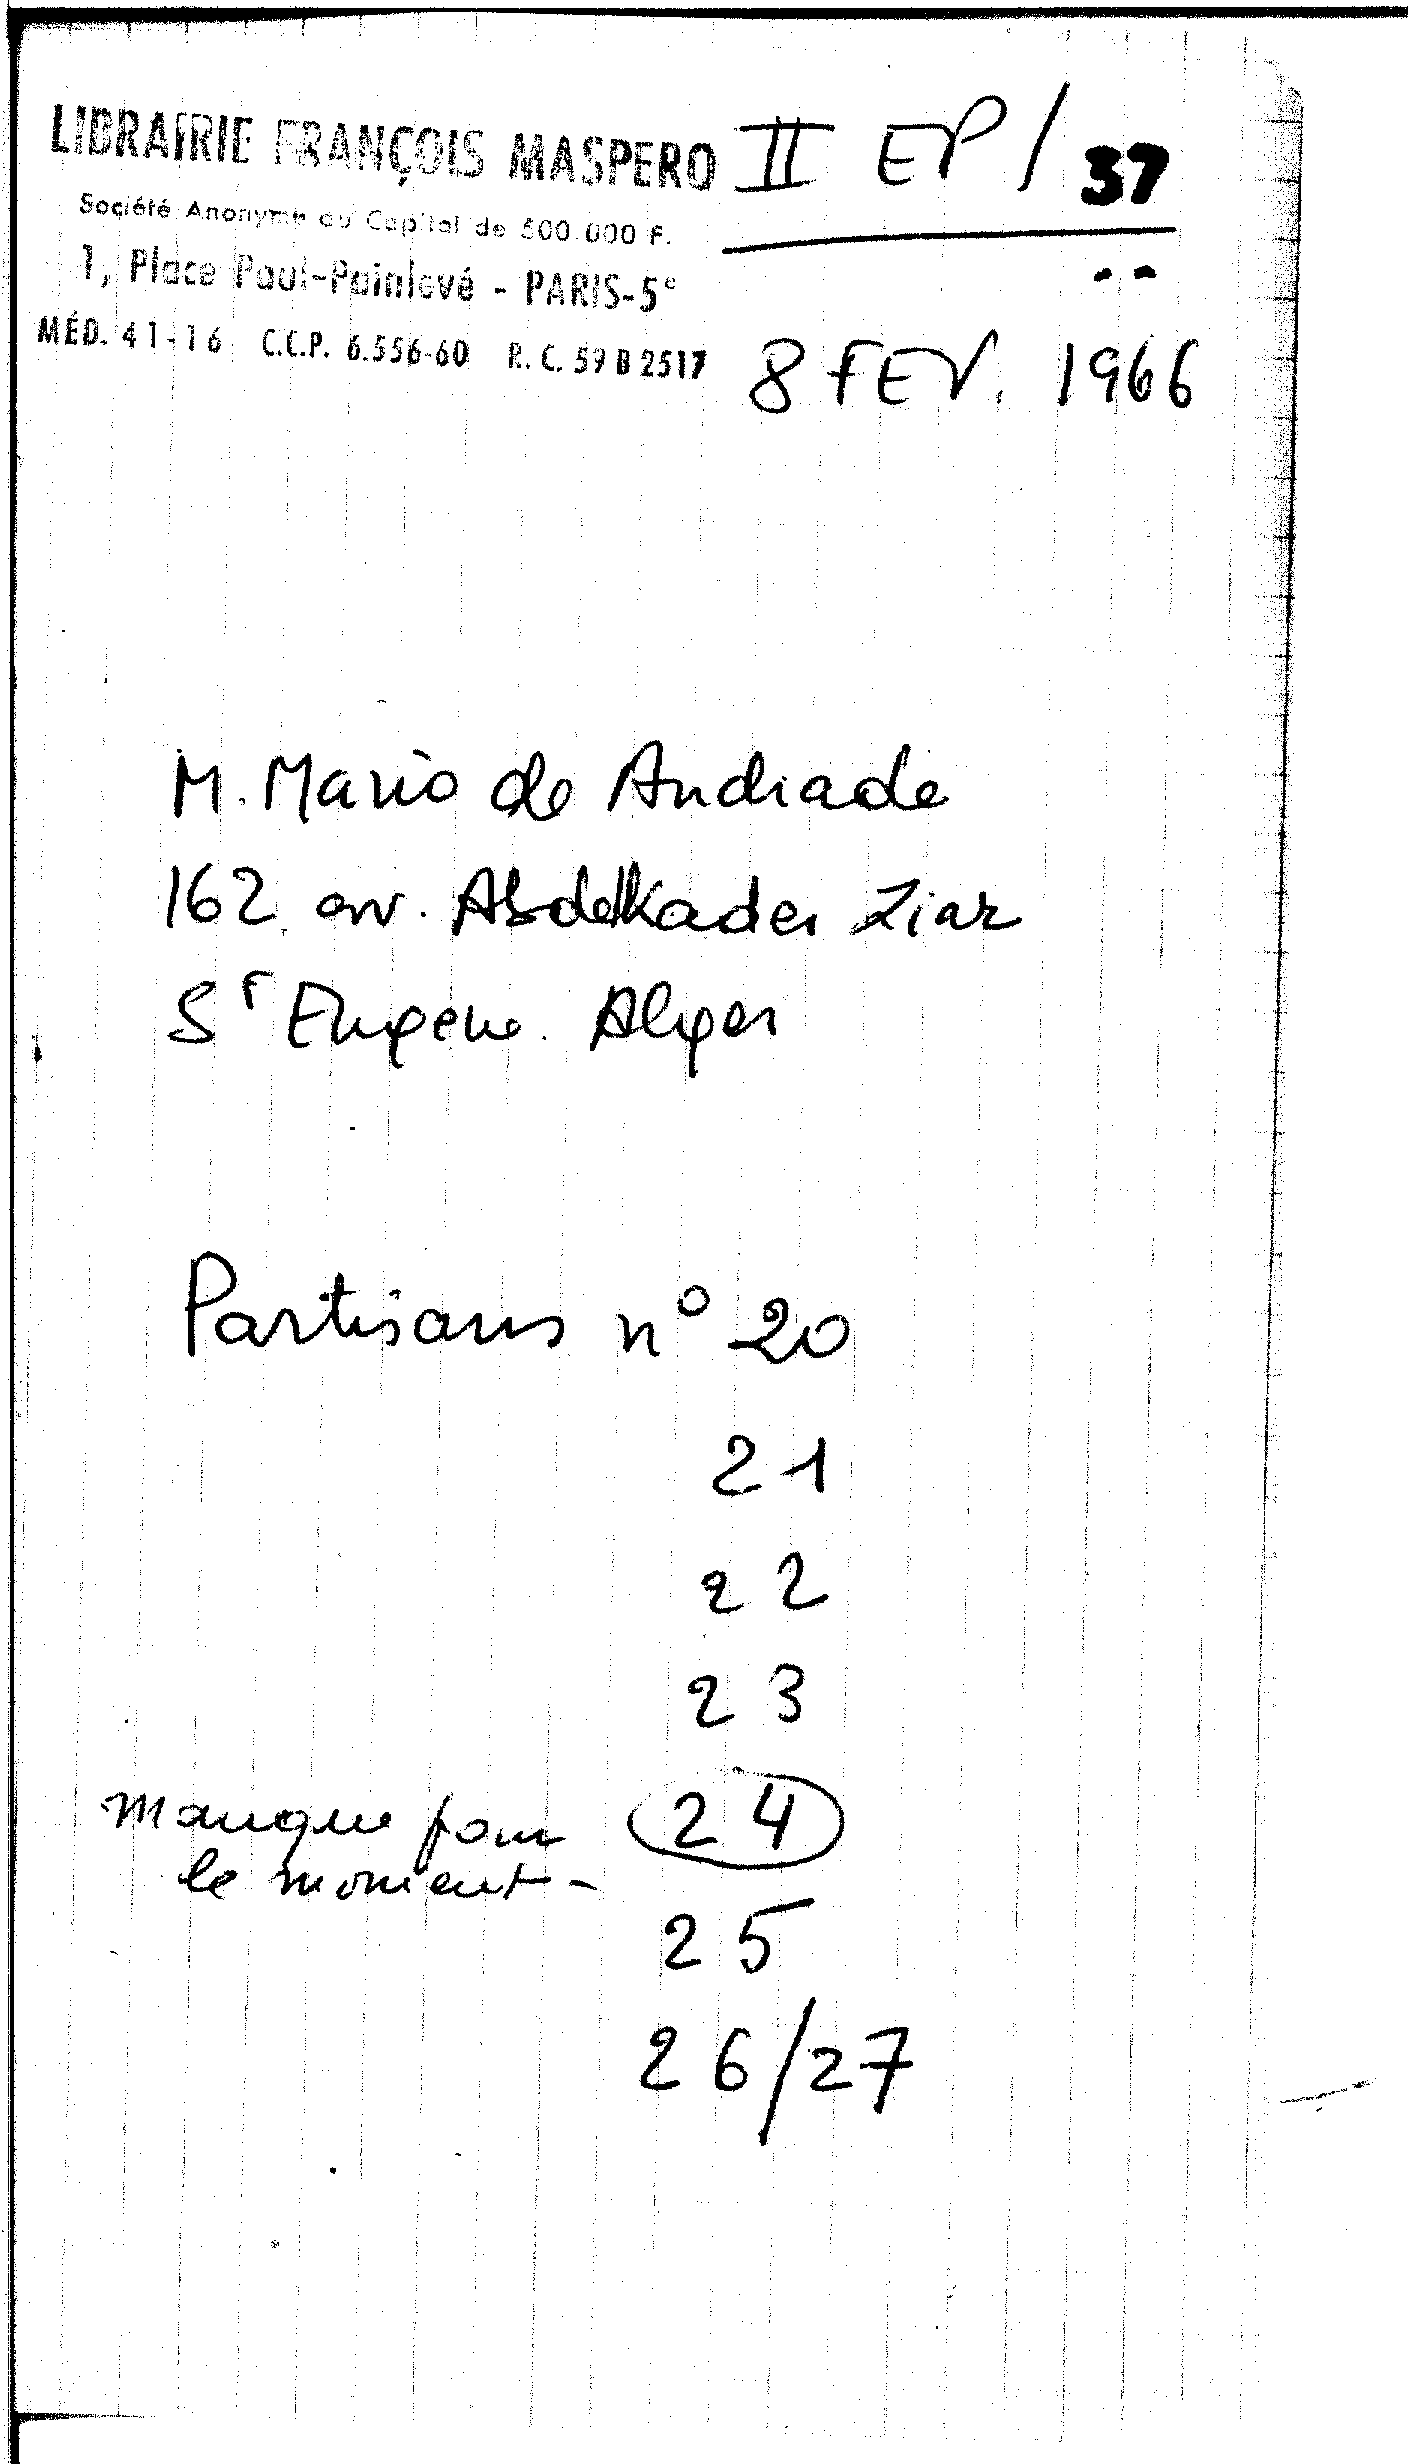 LIBRAIRIE FRANÇOIS MASPERO
Société Anonyme au Capital de 500.000 F.
1, Place Paul-Painlevé - PARIS-5e
MÉD. 41-16 C.C.P. 6.556-60 R.C. 59 B 2517
II EP / 37
8 FEV. 1966
M. Mario de Andrade
162 av. Abdelkader Ziar
St Eugene. Alger
Partisans n° 20
21
22
23
manque pour 24
le moment -
25
26/27